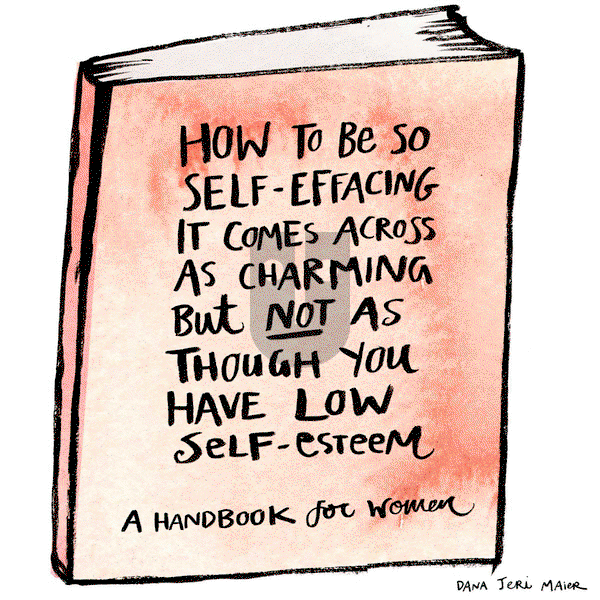 HOW TO BE SO
SELF-EFFACING
IT COMES ACROSS
AS CHARMING
BUT NOT AS
THOUGH YOU
HAVE LOW
SELF-ESTEEM
A HANDBOOK for women
DANA JERI MAIER